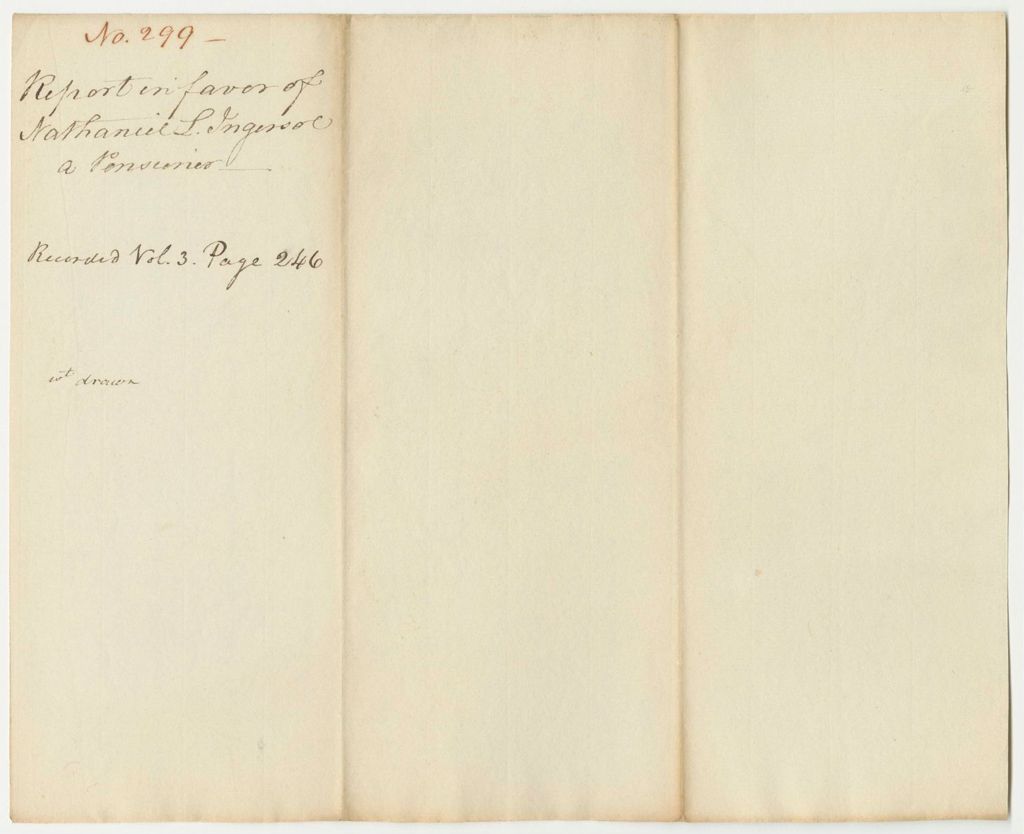 No. 299 —
Report in favor of
Nathaniel L. Ingersol
a Pensioner —
Recorded Vol. 3. Page 246
wt drawn